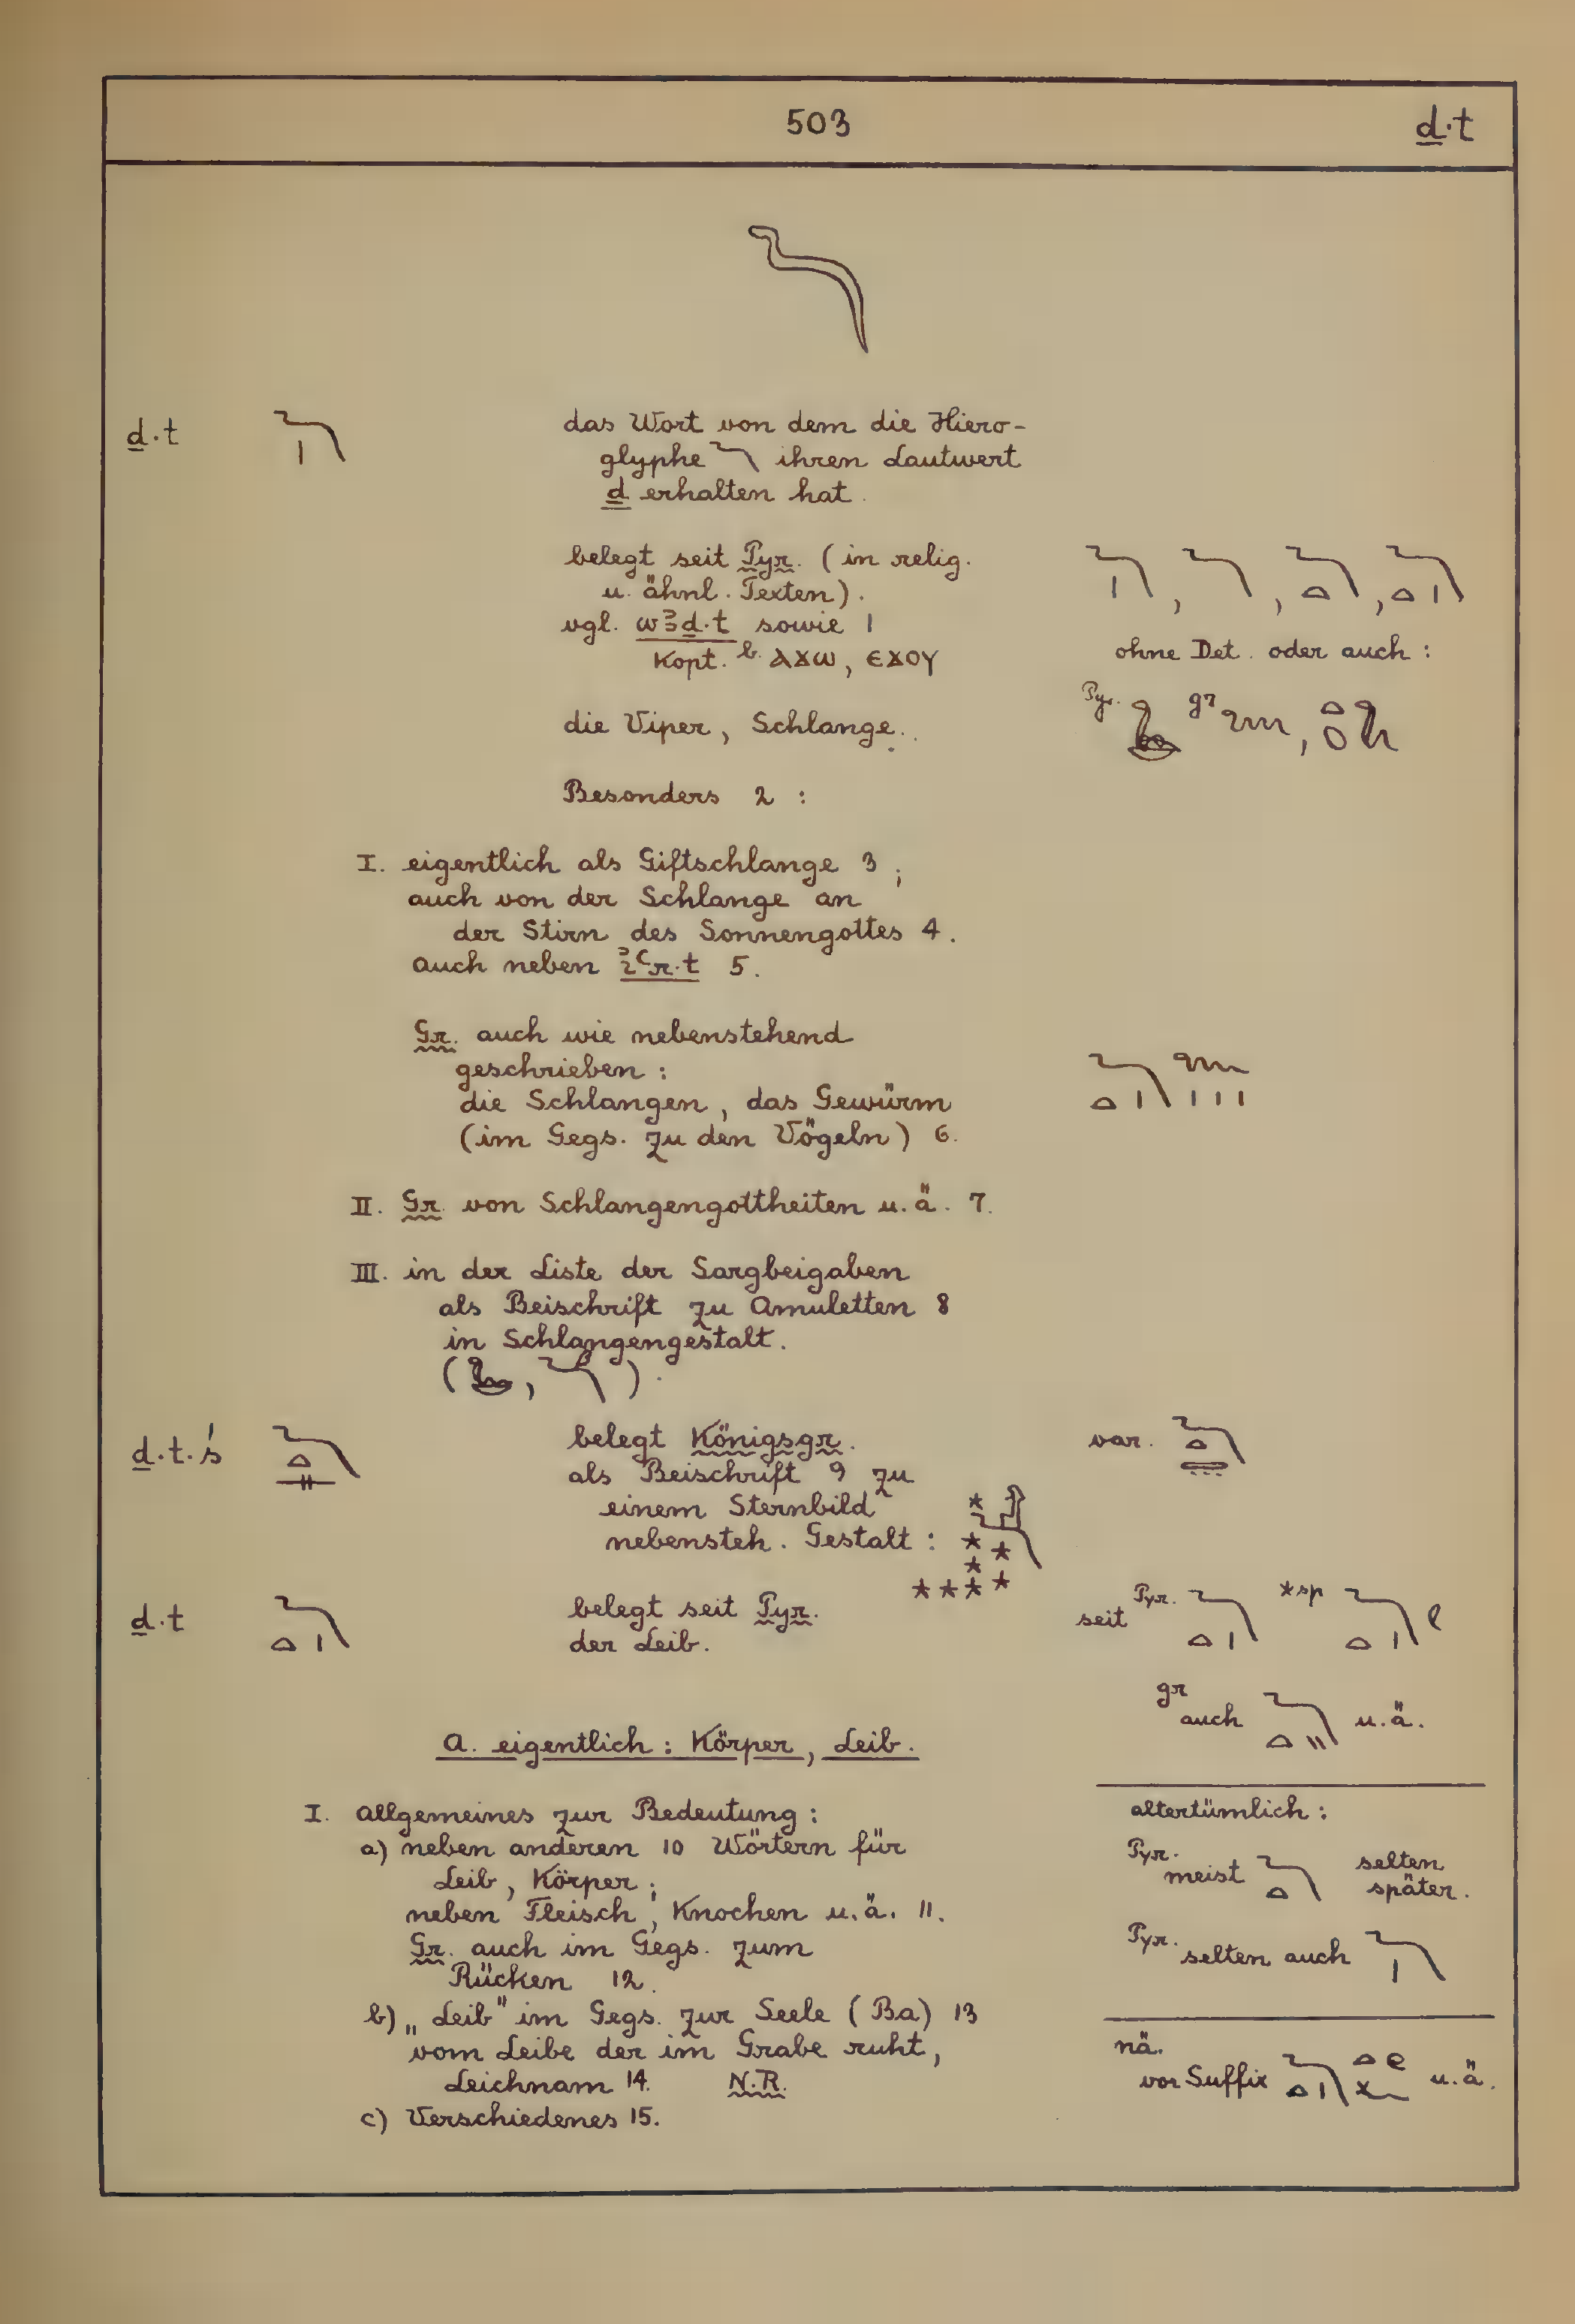 503
ḏ.t
ḏ.t
das Wort von dem die Hiero-
glyphe 𓆓 ihren Lautwert
ḏ erhalten hat.
belegt seit Pyr. (in relig.
u. ähnl. Texten).
vgl. wꜣḏ.t sowie 1
Kopt. b. ⲁϫⲱ, ⲉϫⲟⲩ
ohne Det. oder auch :
die Viper, Schlange.
Pyr. gr
Besonders 2 :
I. eigentlich als Giftschlange 3 ;
auch von der Schlange an
der Stirn des Sonnengottes 4.
auch neben iꜥr.t 5.
Gr. auch wie nebenstehend
geschrieben :
die Schlangen, das Gewürm
(im Gegs. zu den Vögeln) 6.
II. Gr. von Schlangengottheiten u.ä. 7.
III. in der Liste der Sargbeigaben
als Beischrift zu Amuletten 8
in Schlangengestalt.
ḏ.t.ś
belegt Königsgr.
var.
als Beischrift 9 zu
einem Sternbild
nebensteh. Gestalt :
ḏ.t
belegt seit Pyr.
der Leib.
seit Pyr. *sp
gr auch u.ä.
A. eigentlich : Körper, Leib.
I. Allgemeines zur Bedeutung :
a) neben anderen 10 Wörtern für
Leib, Körper ;
neben Fleisch, Knochen u.ä. 11.
Gr. auch im Gegs. zum
Rücken 12.
b) „Leib" im Gegs. zur Seele (Ba) 13
vom Leibe der im Grabe ruht,
Leichnam 14. N.R.
c) Verschiedenes 15.
altertümlich :
Pyr. meist 𓆓𓏏 selten
später.
Pyr. selten auch 𓆓𓏤
nä.
vor Suffix u.ä.